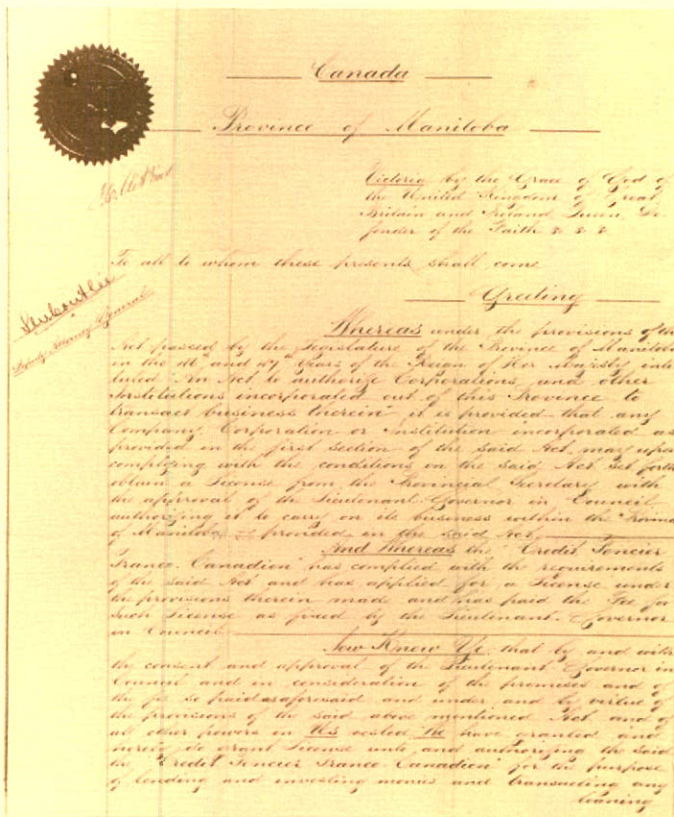 Canada
Province of Manitoba
Victoria by the Grace of God of
the United Kingdom of Great
Britain and Ireland Queen, De-
fender of the Faith & & &
To all to whom these presents shall come
Greeting
Deputy Attorney General
Whereas under the provisions of the
Act passed by the Legislature of the Province of Manitoba
in the 46th and 47th Years of the Reign of Her Majesty inti-
tuled "An Act to authorize Corporations and other
Institutions incorporated out of this Province to
transact business therein" it is provided that any
Company, Corporation or Institution incorporated as
provided in the first section of the said Act, may upon
complying with the conditions in the said Act set forth
obtain a License from the Provincial Secretary with
the approval of the Lieutenant Governor in Council
authorizing it to carry on its business within the Province
of Manitoba as provided in the said Act.
And Whereas the "Credit Foncier
Franco-Canadien" has complied with the requirements
of the said Act and has applied for a License under
the provisions therein made and has paid the Fee for
such License as fixed by the Lieutenant-Governor
in Council
Now Know Ye that by and with
the consent and approval of the Lieutenant Governor in
Council and in consideration of the premises and of
the fee so paid as aforesaid and under and by virtue of
the provisions of the said above mentioned Act and of
all other powers in Us vested We have granted and
hereby do grant License unto and authorizing the said
the "Credit Foncier Franco-Canadien" for the purpose
of lending and investing monies and transacting any
loaning